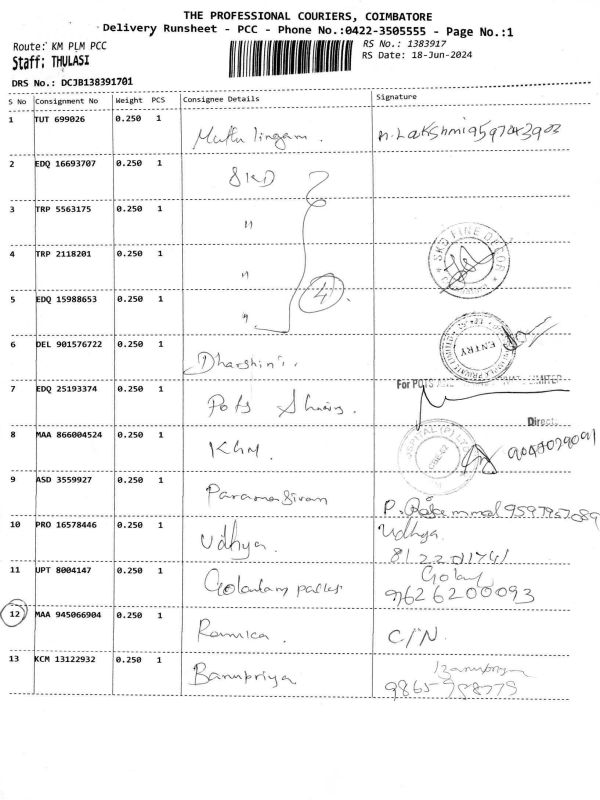 THE PROFESSIONAL COURIERS, COIMBATORE
Delivery Runsheet - PCC - Phone No.:0422-3505555 - Page No.:1
Route: KM PLM PCC
RS No.: 1383917
Staff: THULASI
RS Date: 18-Jun-2024
DRS No.: DCJB138391701
S No Consignment No Weight PCS Consignee Details Signature
1 TUT 699026 0.250 1 Muthu lingam.
2 EDQ 16693707 0.250 1 SKD
3 TRP 5563175 0.250 1 "
4 TRP 2118201 0.250 1 "
4
SKD FINE DECOR
5 EDQ 15988653 0.250 1 "
6 DEL 901576722 0.250 1 Dharshini.
ENTRY
7 EDQ 25193374 0.250 1 Pots
For POTS LIMITED
Direct
8 MAA 866004524 0.250 1 KHM.
9 ASD 3559927 0.250 1 Paramasivam
10 PRO 16578446 0.250 1 Udhya. Udhya.
8122201741
11 UPT 8004147 0.250 1
9626200093
12 MAA 945066904 0.250 1 Ramica. C/N.
13 KCM 13122932 0.250 1 Banupriya Banupriya